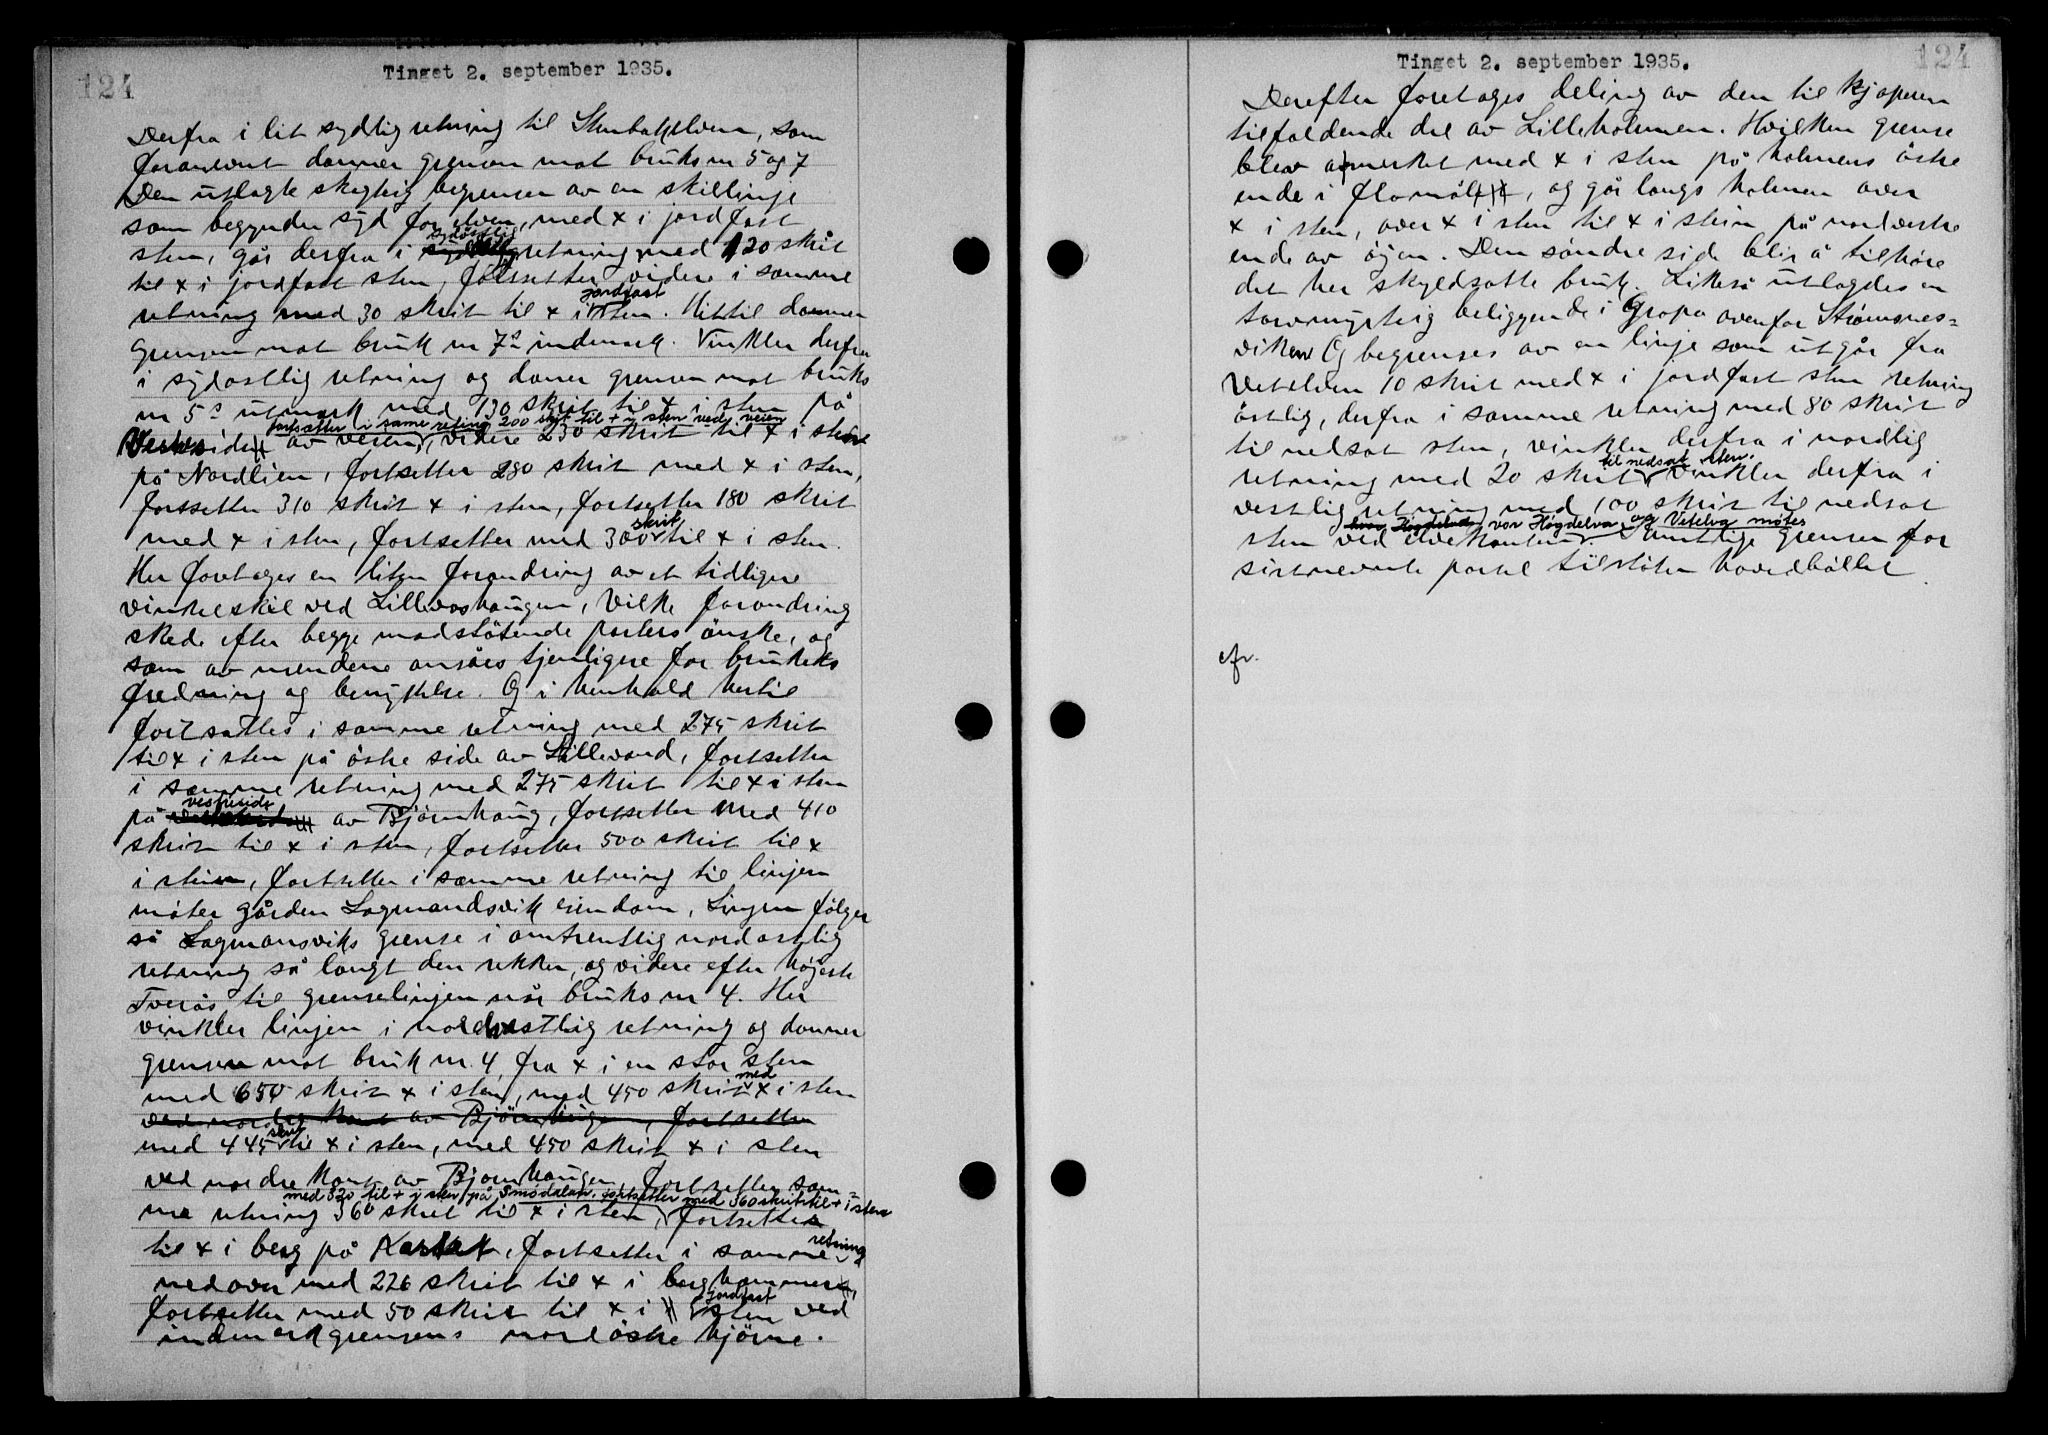 124
Tinget 2. september 1935.
Derfra i lit sydlig retning til Stenbakelven, som
forannevnt danner grensen mot bruksnr 5 og 7
Den utlagte skogteig begrenses av en skillinje
som begynder syd for elven, med x i jordfast
sten, går derfra i sydöstlig retning med 120 skrit
til x i jordfast sten, fortsetter videre i samme
retning med 30 skrit til x i jordfast sten. Hittil danner
grensen mot bruk nr 7s indmark. Vinkler derfra
i sydostlig retning og daner grensen mot bruks
nr 5s utmark med 130 skrit til x i sten på
Vestreside av veien, fortsætter i same reting 200 skrit til + i sten ved veien, videre 230 skrit til x i sten
på Nordlien, fortsetter 280 skrit med x i sten,
fortsetter 310 skrit x i sten, fortsetter 180 skrit
med x i sten, fortsetter med 300 skrit til x i sten.
Her foretages en liten forandring av et tidligere
vinkelskil ved Lillevashaugen, Vilke forandring
skede efter begge modstötende parters önske, og
som av mendene ansåes tjenligere for brukets
fredning og benyttelse. Og i henhold hertil
fortsattes i samme retning med 275 skrit
til x i sten på östre side av Lillevand, fortsetter
i samme retning med 275 skrit til x i sten
på vestreside av Björnhaug, fortsetter med 410
skrit til x i sten, fortsetter 500 skrit til x
i sten, fortsetter i samme retning til linjen
möter gården Lagmandsvik eiendom, Linjen fölger
så Lagmansviks grense i omtrentlig nordostlig
retning så langt den rekker, og videre efter höjeste
Tverås til grenselinjen når bruks nr 4. Her
vinkler linjen i nordvestlig retning og danner
grensen mot bruk nr. 4, fra x i en stor sten
med 650 skrit x i sten, med 450 skrit med x i sten
ved nordre kant av Björnhaugen, fortsetter
med 445 skrit til x i sten, med 450 skrit x i sten
ved nordre kant av Bjornhaugen, fortsetter sam-
me retning 360 skrit til x i sten, med 320 til + i sten på Smodalan, fortsetter med 360 skrit til + i sten fortsetter
til x i berg på , fortsetter i samme retning
nedover med 226 skrit til x i berghammer,
fortsetter med 50 skrit til x i jordfast sten ved
indmarkgrensens nordöstre hjörne.
Tinget 2. september 1935.
124
Derefter foretages deling av den til kjöperen
tilfaldende del av Lilleholmen. Hvilken grense
blev avmerket med x i sten på holmens östre
ende i flomålet, og går langs holmen over
x i sten, over x i sten til x i stein på nordvestre
ende av öjen. Den söndre side blir å tilhöre
det her skyldsatte bruk. Likeså utlagdes en
torvmyrteig beliggende i Gropa ovenfor Strömsnes=
viken Og begrenses av en linje som utgår fra
Vetelven 10 skrit med x i jordfast sten retning
östlig, derfra i samme retning med 80 skrit
til nedsat sten, vinkler derfra i nordlig
retning med 20 skrit til nedsat sten. Vinkler derfra i
vestlig retning med 100 skrit til nedsat
sten ved elvekanten vor Högdelva og Vetelva mötes. Samtlige grenser for
sistnevnte parsel tilstöter hovedböllet.
cfr.